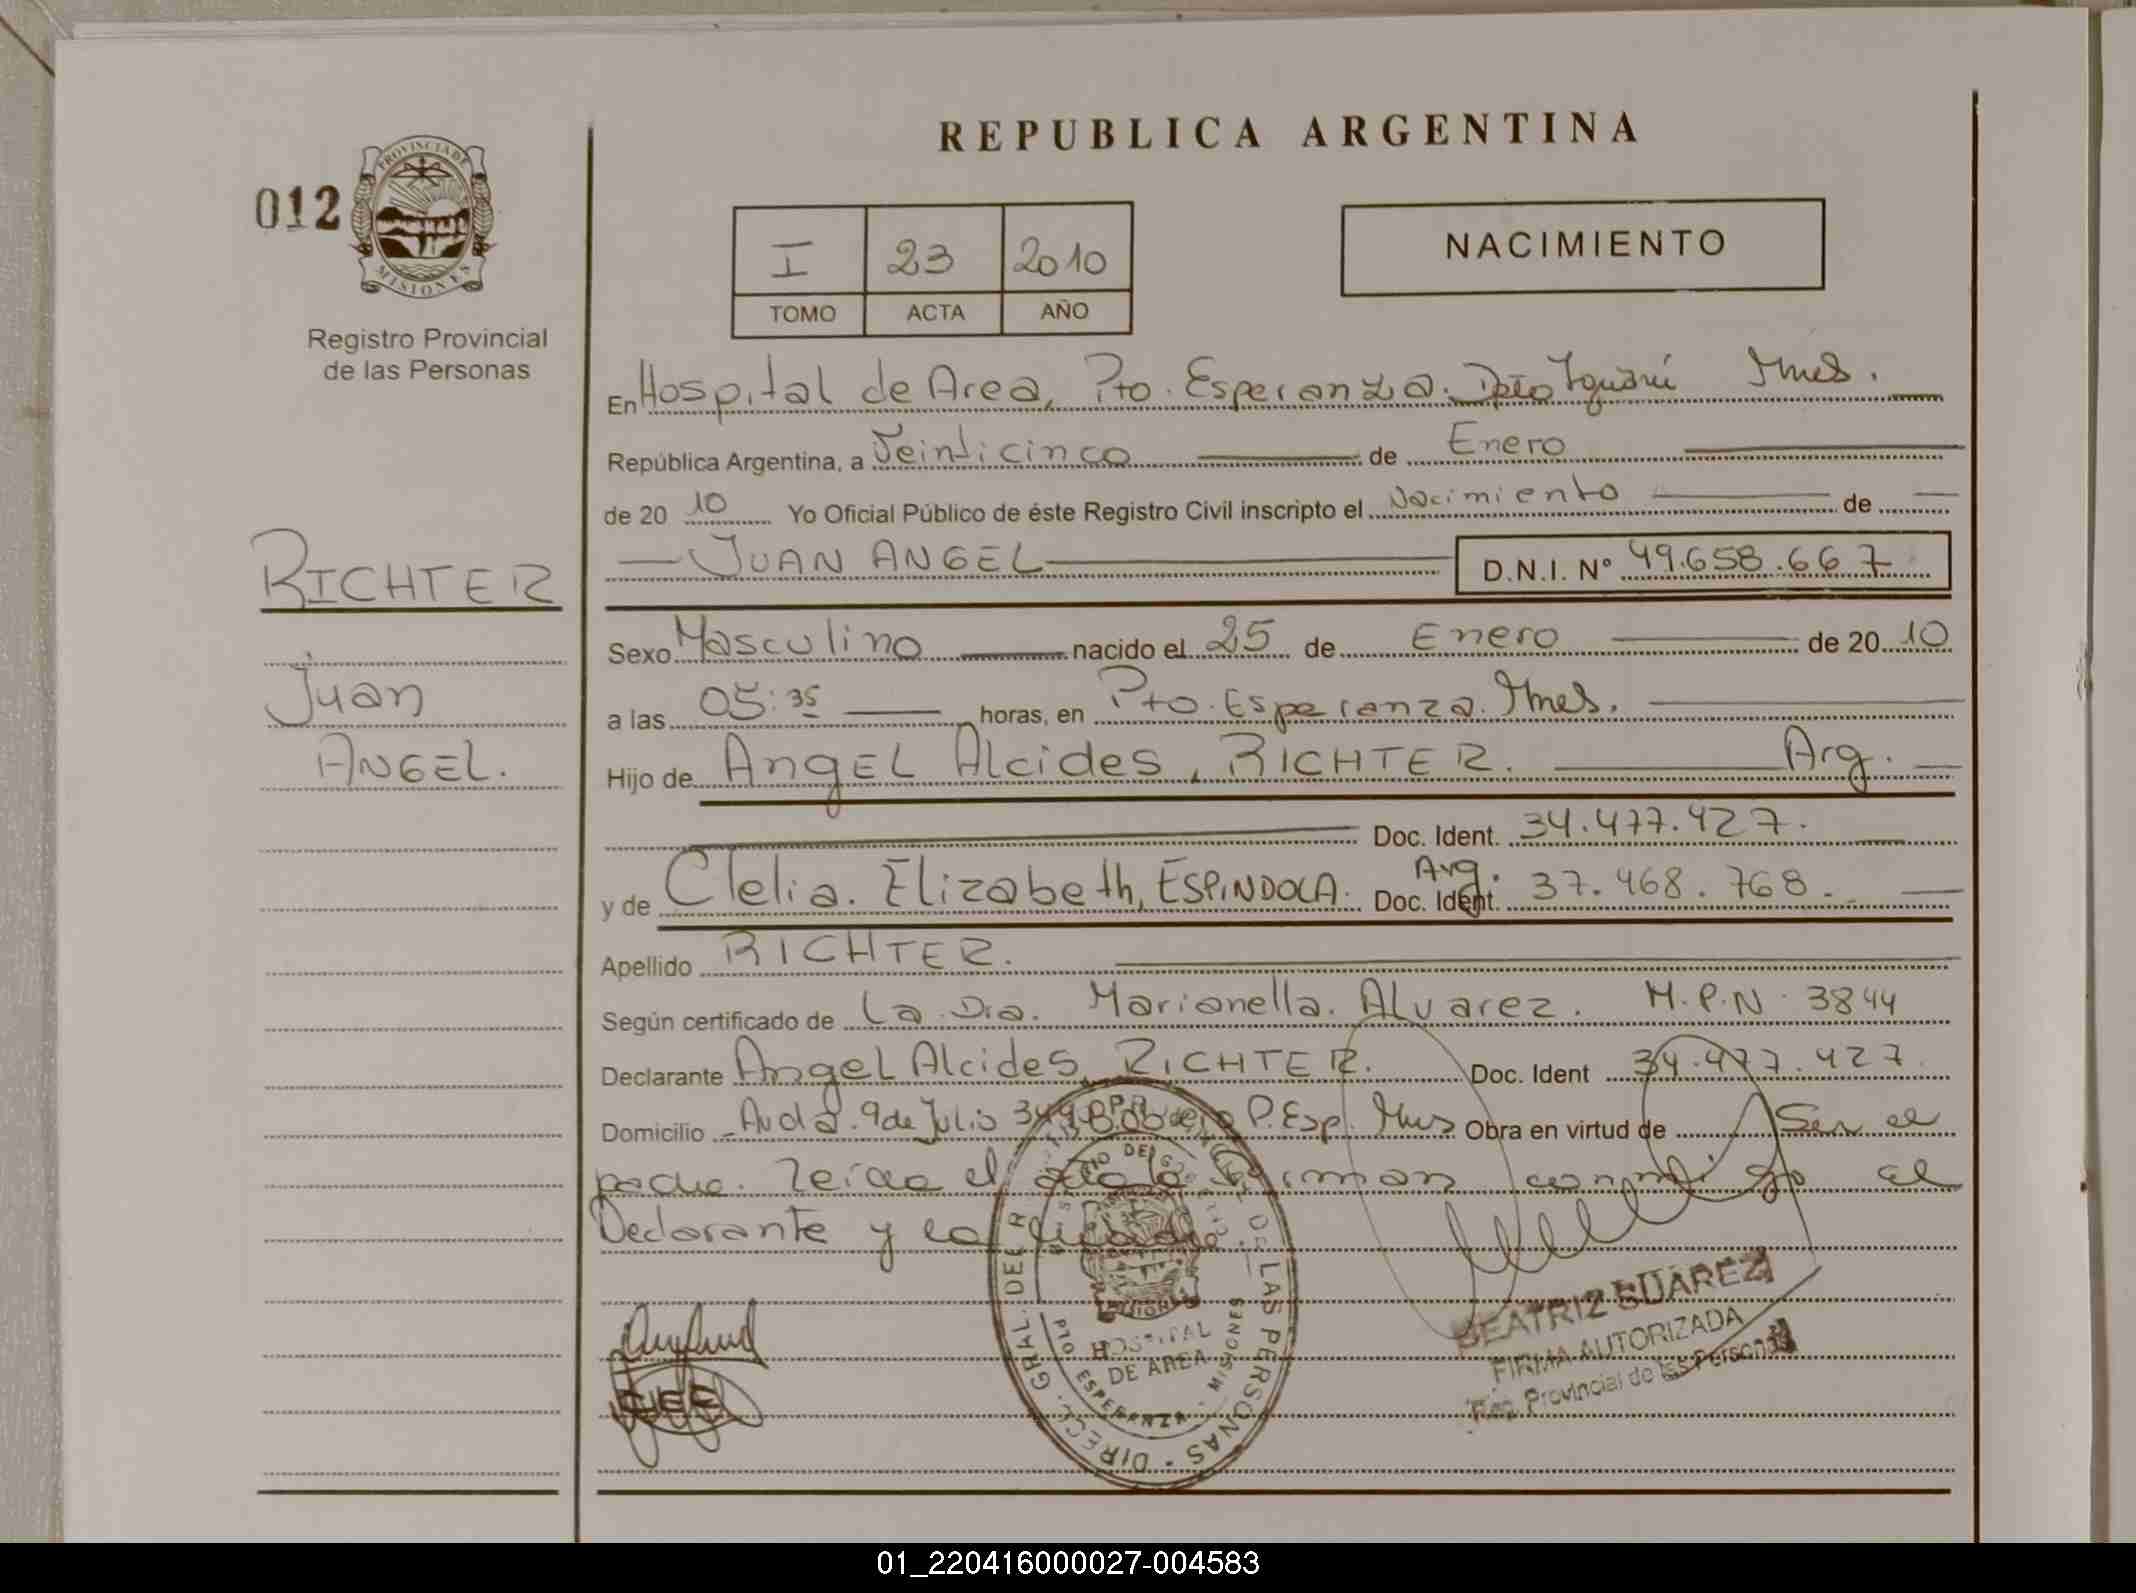 REPUBLICA ARGENTINA
012
PROVINCIA DE
MISIONES
Registro Provincial
de las Personas
I 23 2010
TOMO ACTA AÑO
NACIMIENTO
En Hospital de Area, Pto. Esperanza. Dpto Iguazú Mnes.
República Argentina, a Veinticinco de Enero
de 20 10 Yo Oficial Público de éste Registro Civil inscripto el Nacimiento de
JUAN ANGEL D.N.I. Nº 49.658.667
RICHTER
Juan
ANGEL.
Sexo Masculino nacido el 25 de Enero de 20 10
a las 05:35 horas, en Pto. Esperanza. Mnes.
Hijo de AngEL Alcides, RICHTER. Arg.
Doc. Ident. 34.477.427.
y de Clelia. Elizabeth, ESPINDOLA. Arg. Doc. Ident. 37.468.768.
Apellido RICHTER.
Según certificado de La Dra. Marianella. Alvarez. M.P.N. 3844
Declarante AngeL Alcides, RICHTER. Doc. Ident 34.477.427.
Domicilio Avda. 9 de Julio P. Esp. Mnes Obra en virtud de Ser el
padre. Leida el acta la firman conmigo el
Declarante y la
DIRECC. GRAL. DEL R. DE LAS PERSONAS
HOSPITAL
DE AREA
PTO ESPERANZA - MISIONES
CEE
BEATRIZ SUAREZ
FIRMA AUTORIZADA
Reg. Provincial de las Personas
01_220416000027-004583